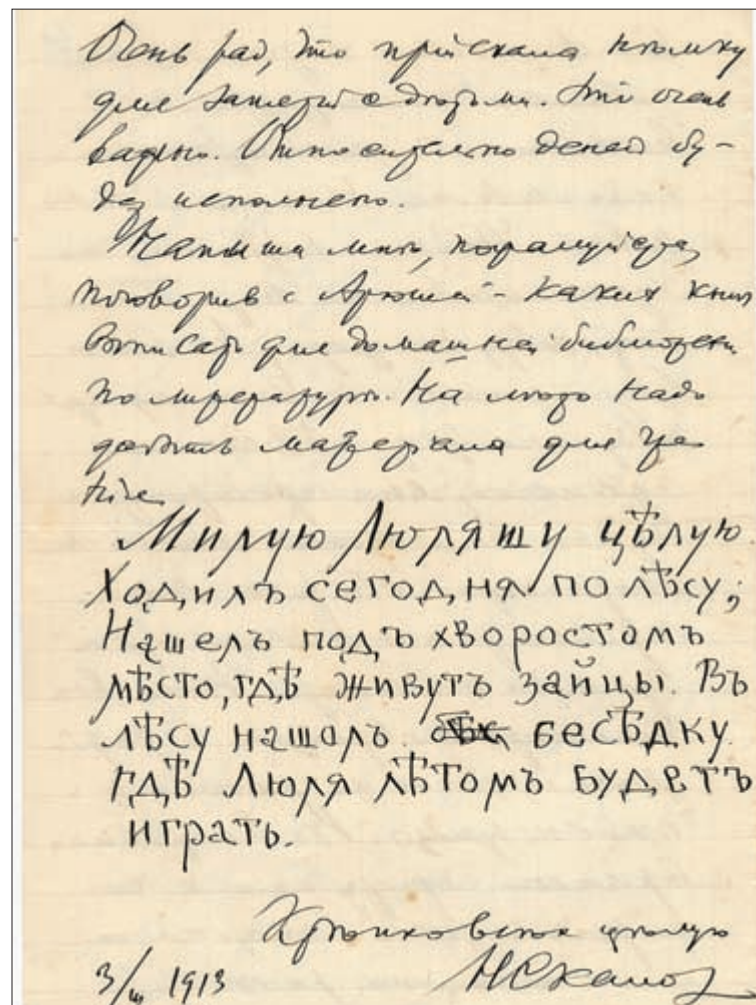 Очень рад, что прiискала нѣмку
для занятiй с дѣтьми. Это очень
важно. Относительно денег бу-
дет исполнено.
Напиши мнѣ, пожалуйста,
поговорив с - каких книг
выписать для домашней библiотеки
по литературѣ. На лѣто надо
добыть матерiала для чте
нiя
Милую Люляшу цѣлую.
Ходилъ сегодня по лѣсу;
Нашелъ подъ хворостомъ
мѣсто, гдѣ живутъ зайцы. Въ
лѣсу нашолъ бесѣдку
гдѣ Люля лѣтомъ будетъ
играть.
цѣлую
3/III 1913